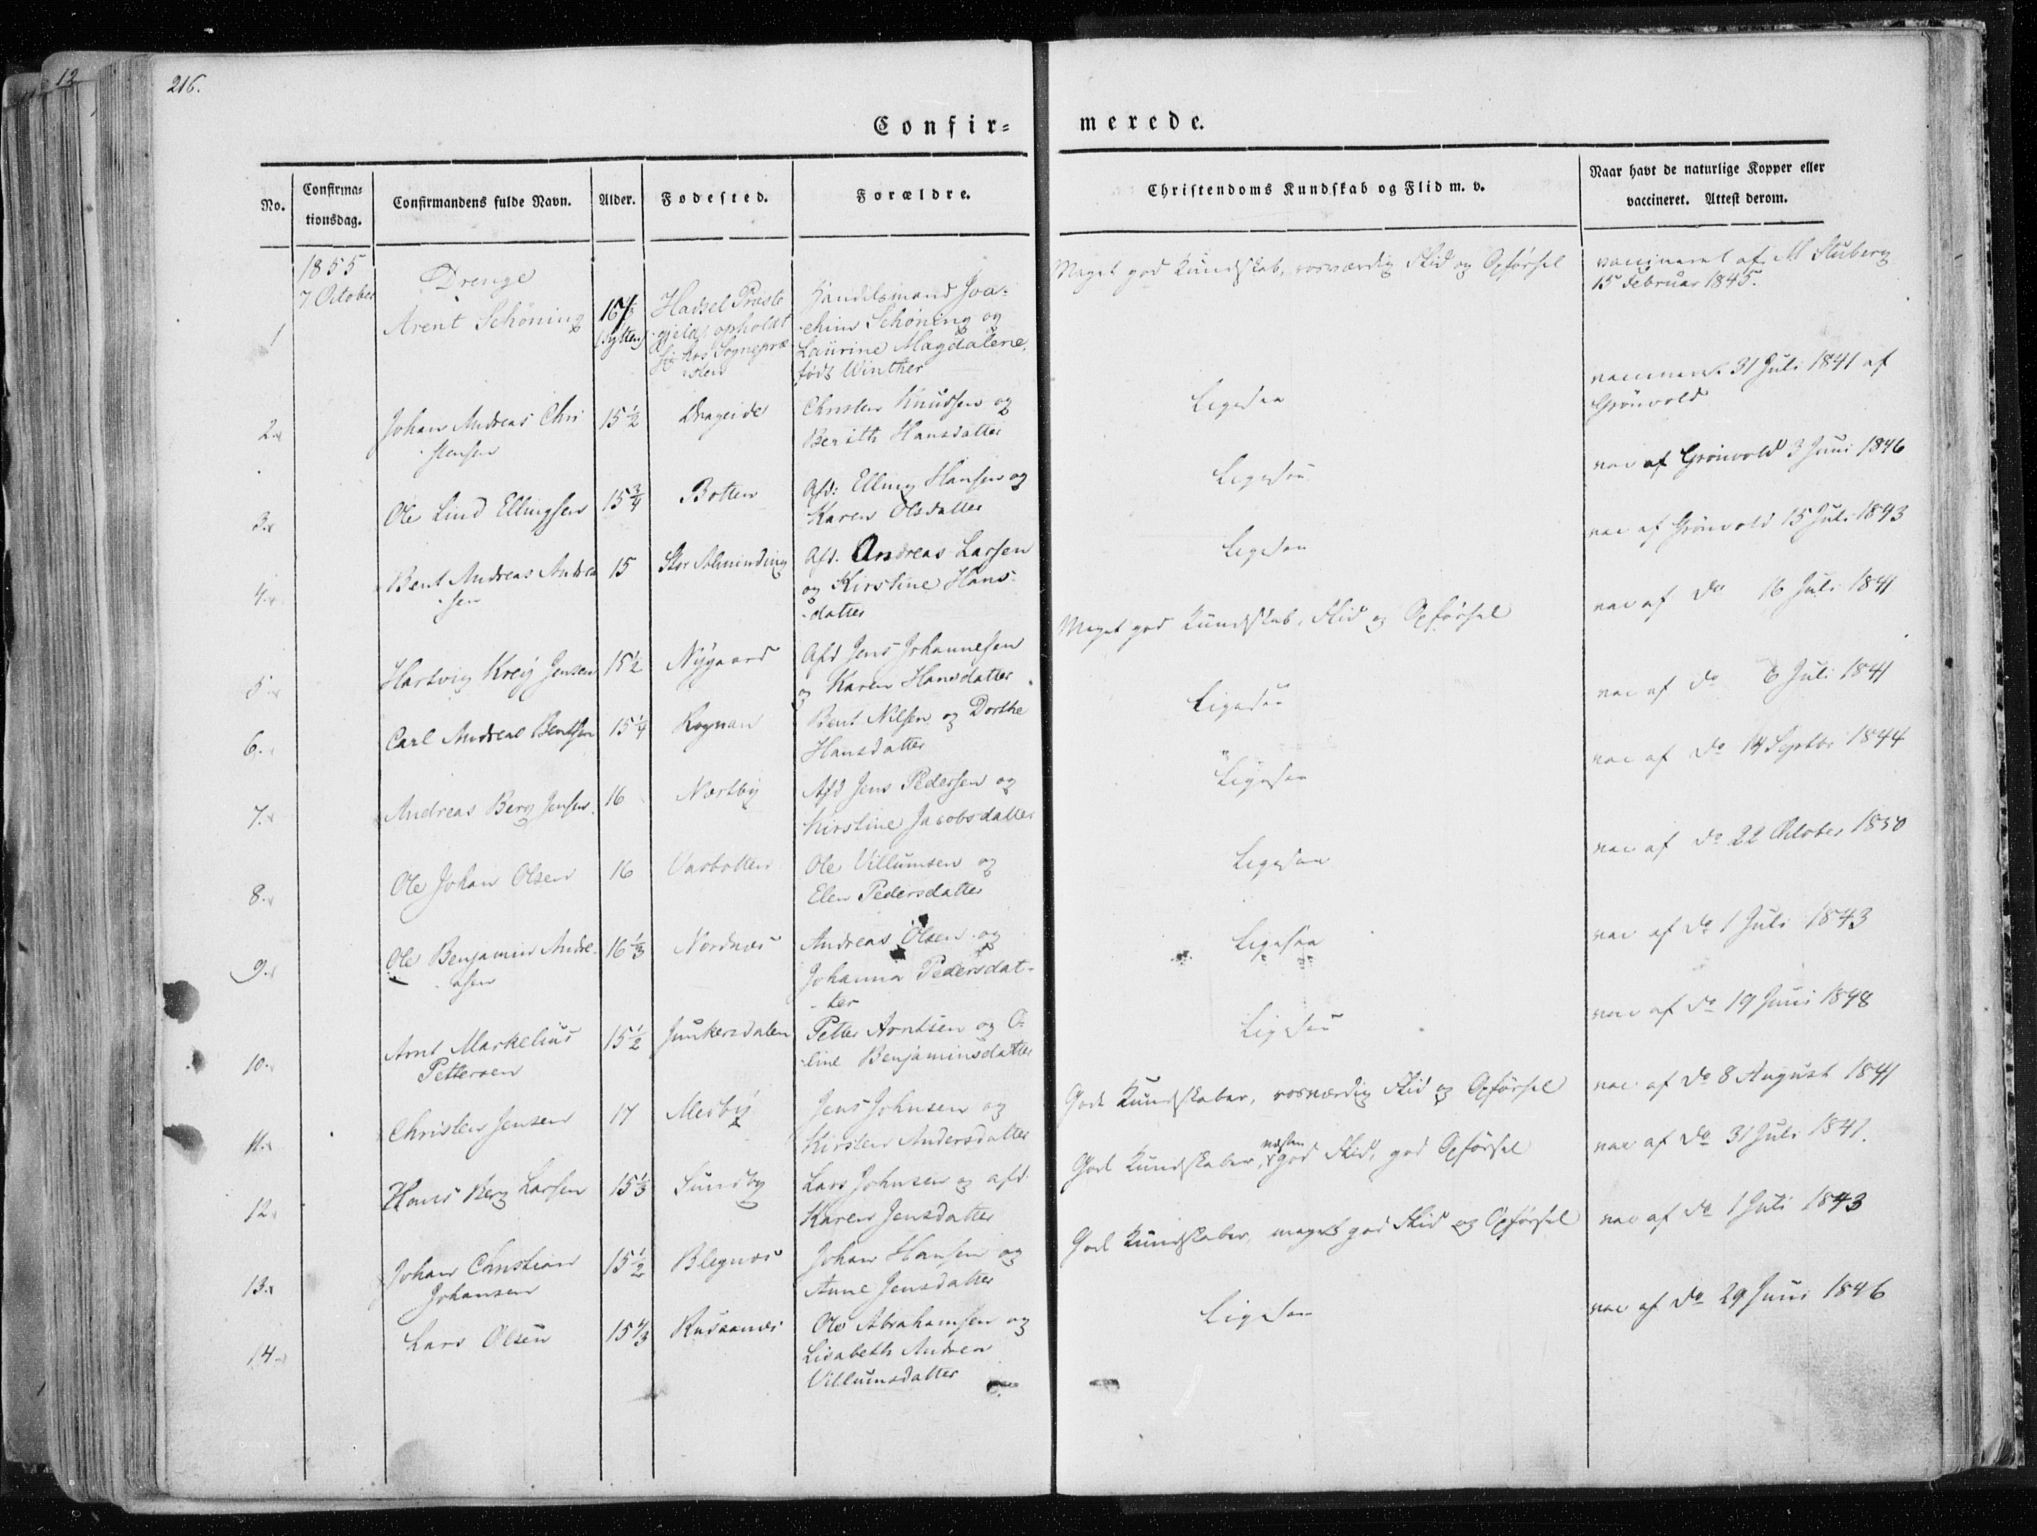 12
216.
Confir=
merede.
No.
Confirma=
tionsdag.
Confirmandens fulde Navn.
Alder.
Fodested.
Forældre.
Christendoms Kundskab og Flid m. v.
Naar havt de naturlige Kopper eller
vaccineret. Attest derom.
1855
7 October
Drenge
1
Arent Schöning
Hadsel Præste
gjeld, opholdt
sig hos Sognepræ
sten
Handelsmand Joa-
chim Schöning og
Laurine Magdalene,
født Winther
Meget god Kundskab, rosværdig Flid og Opførsel
vaccineret af M Stuberg
15 Februar 1845.
2.
Johan Andreas Chri
stensen
15 1/2
Drageide
Christen Knudsen og
Berith Hansdatter
Ligesaa
31 Juli 1841 af
Grönvold
3.
Ole Lind Ellingsen
15 3/4
Botten
Afd: Elling Hansen og
Karen Olsdatter
Ligesaa
vac af Grönvold 3 Juni 1846
4.
Bent Andreas Andrea
sen
15
Stor Alminding
Afd. Andreas Larsen
og Kirstine Hans-
datter
Ligesaa
vac af Grönvold 15 Juli 1843
5.
Hartvig Kreij Jensen
15 1/2
Nygaard
Afd Jens Johannesen
og Karen Hansdatter
Meget god Kundskab, Flid og Opførsel
vac af do 16 Juli 1841
6.
Carl Andreas Bentsen
15 1/4
Rognan
Bent Nilsen og Dorthe
Hansdatter
Ligesaa
vac af do 6 Juli 1841
7.
Andreas Berg Jensen.
16
Nærtby
Afd Jens Pedersen og
Kirstine Jacobsdatter
Ligesaa
vac af do 14 Septbr 1844
8.
Ole Johan Olsen
16
Vasbotten
Ole Villumsen og
Elen Pedersdatter
Ligesaa
vac af do 22 October 1850
9.
Ole Benjamin Andre
asen
16 1/3
Nordnæs
Andreas Olsen og
Johanna Pedersdat-
ter
Ligesaa
vac af do 1 Juli 1843
10.
Arnt Markelius
Pettersen
15 1/2
Junkersdalen
Petter Arntsen og O-
line Benjaminsdatter
Ligesaa
vac af do 19 Juni 1848
11.
Christen Jensen
17
Medby
Jens Johnsen og
Kirsten Andersdatter
Gode Kundskaber, rosværdig Flid og Opførsel
vac. af do 8 August 1841
12.
Hans Berg Larsen
15 1/3
Sundby
Lars Johnsen og afd
Karen Jensdatter
God Kundskaber, næsten god Flid, god Opførsel
vac af do 31 Juli 1841.
13.
Johan Christian
Johansen
15 1/2
Blegnæs
Johan Hansen og
Anne Jensdatter
God Kundskaber, meget god Flid og Opførsel
vac af do 1 Juli 1843
14.
Lars Olsen
Russanæs
Ole Abrahamsen og
Lisabeth Andrea
Villumsdatter
Ligesaa
vac af do 29 Juni 1846